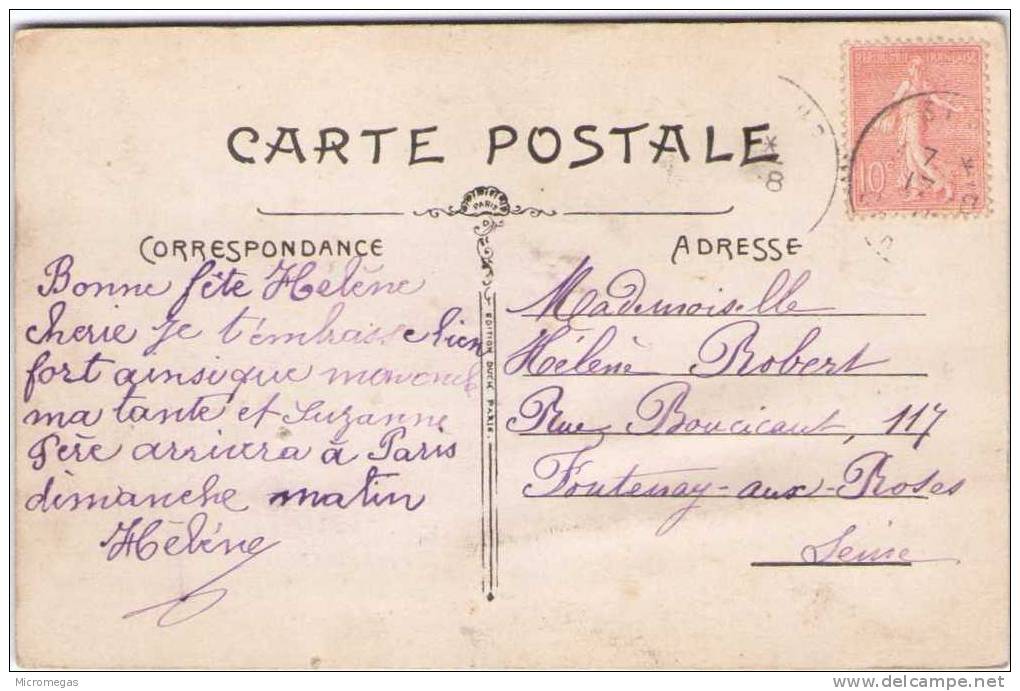 CARTE POSTALE
PARIS
CORRESPONDANCE
Bonne fête Hélène
cherie je t'embrasse bien
fort ainsique mon oncle
ma tante et Suzanne
Père arrivera à Paris
dimanche matin
Hélène
EDITION DUCK PARIS.
ADRESSE
Mademoiselle
Hélène Robert
Rue Boucicaut, 117
Fontenay-aux-Roses
Seine
REPUBLIQUE FRANÇAISE
10c
* 8
7
17
Micromegas
www.delcampe.net